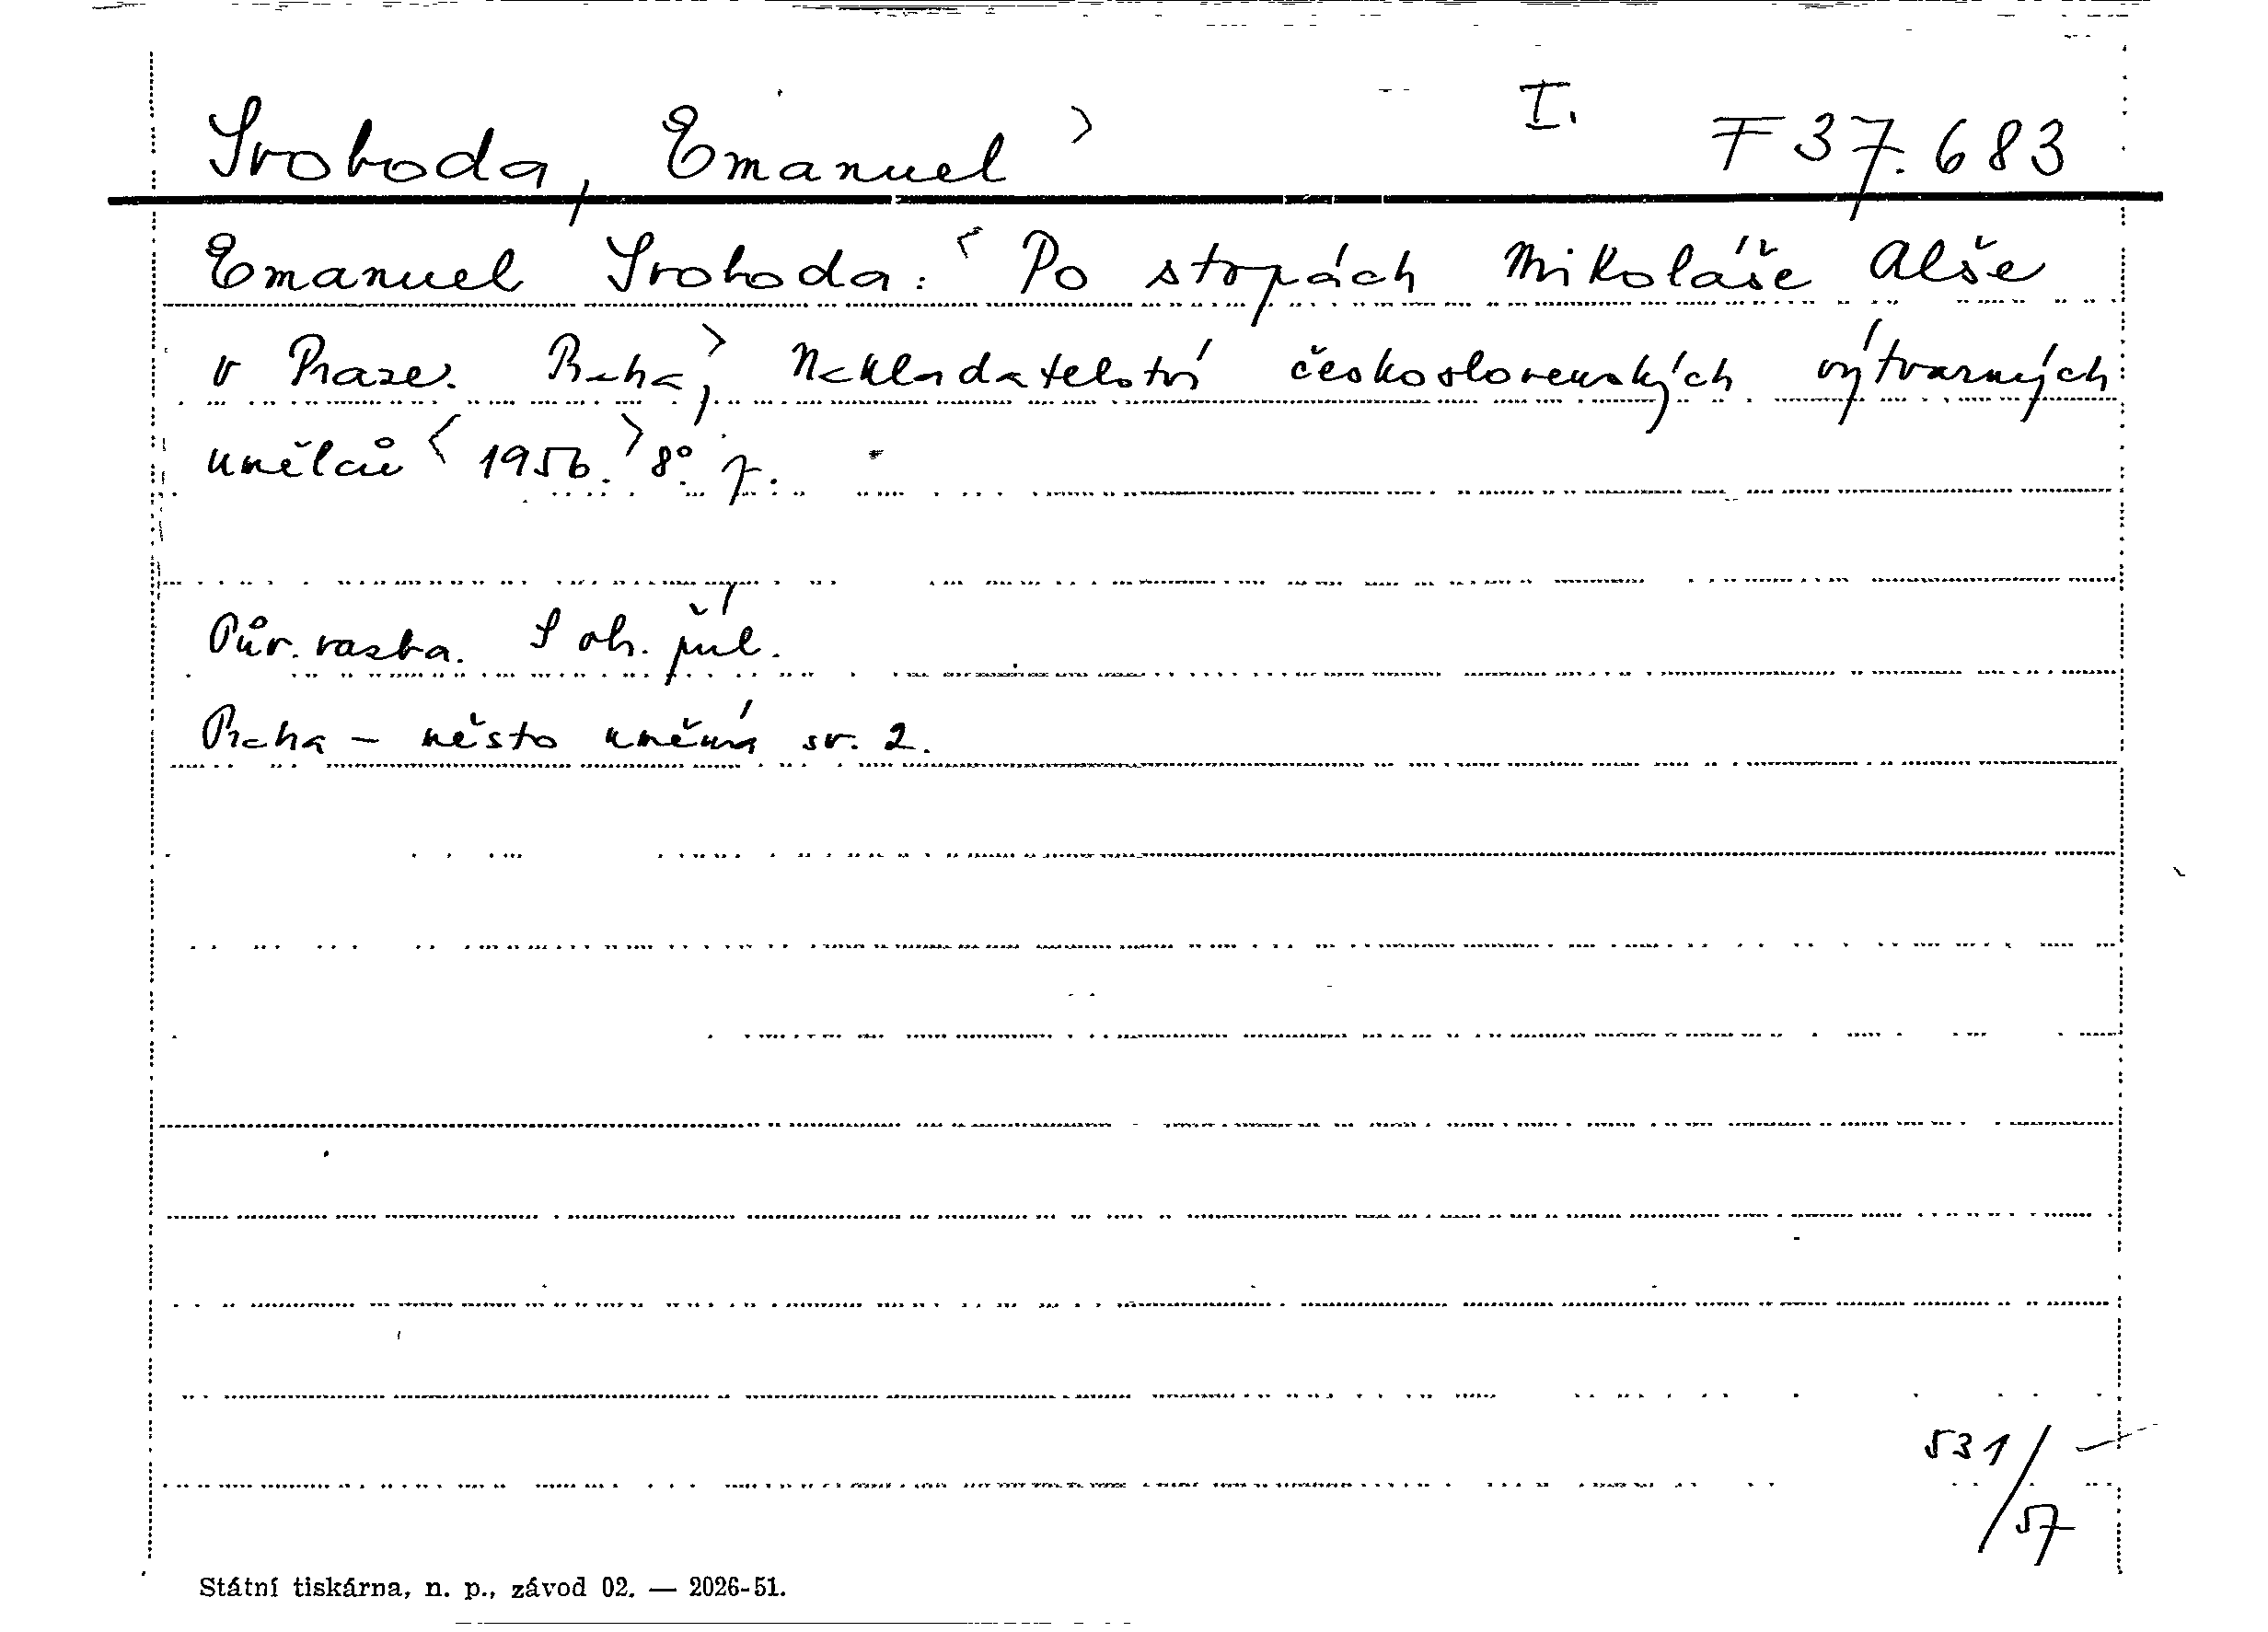 I.
Svoboda, Emanuel> F 37.683
Emanuel Svoboda: <Po stopách Mikoláše Alše
v Praze. Praha,> Nakladatelství československých výtvarných
umělců <1956.> 8°.
Pův. vazba. S ob. příl.
Praha – město umění sv. 2.
531/57
Státní tiskárna, n. p., závod 02. — 2026-51.